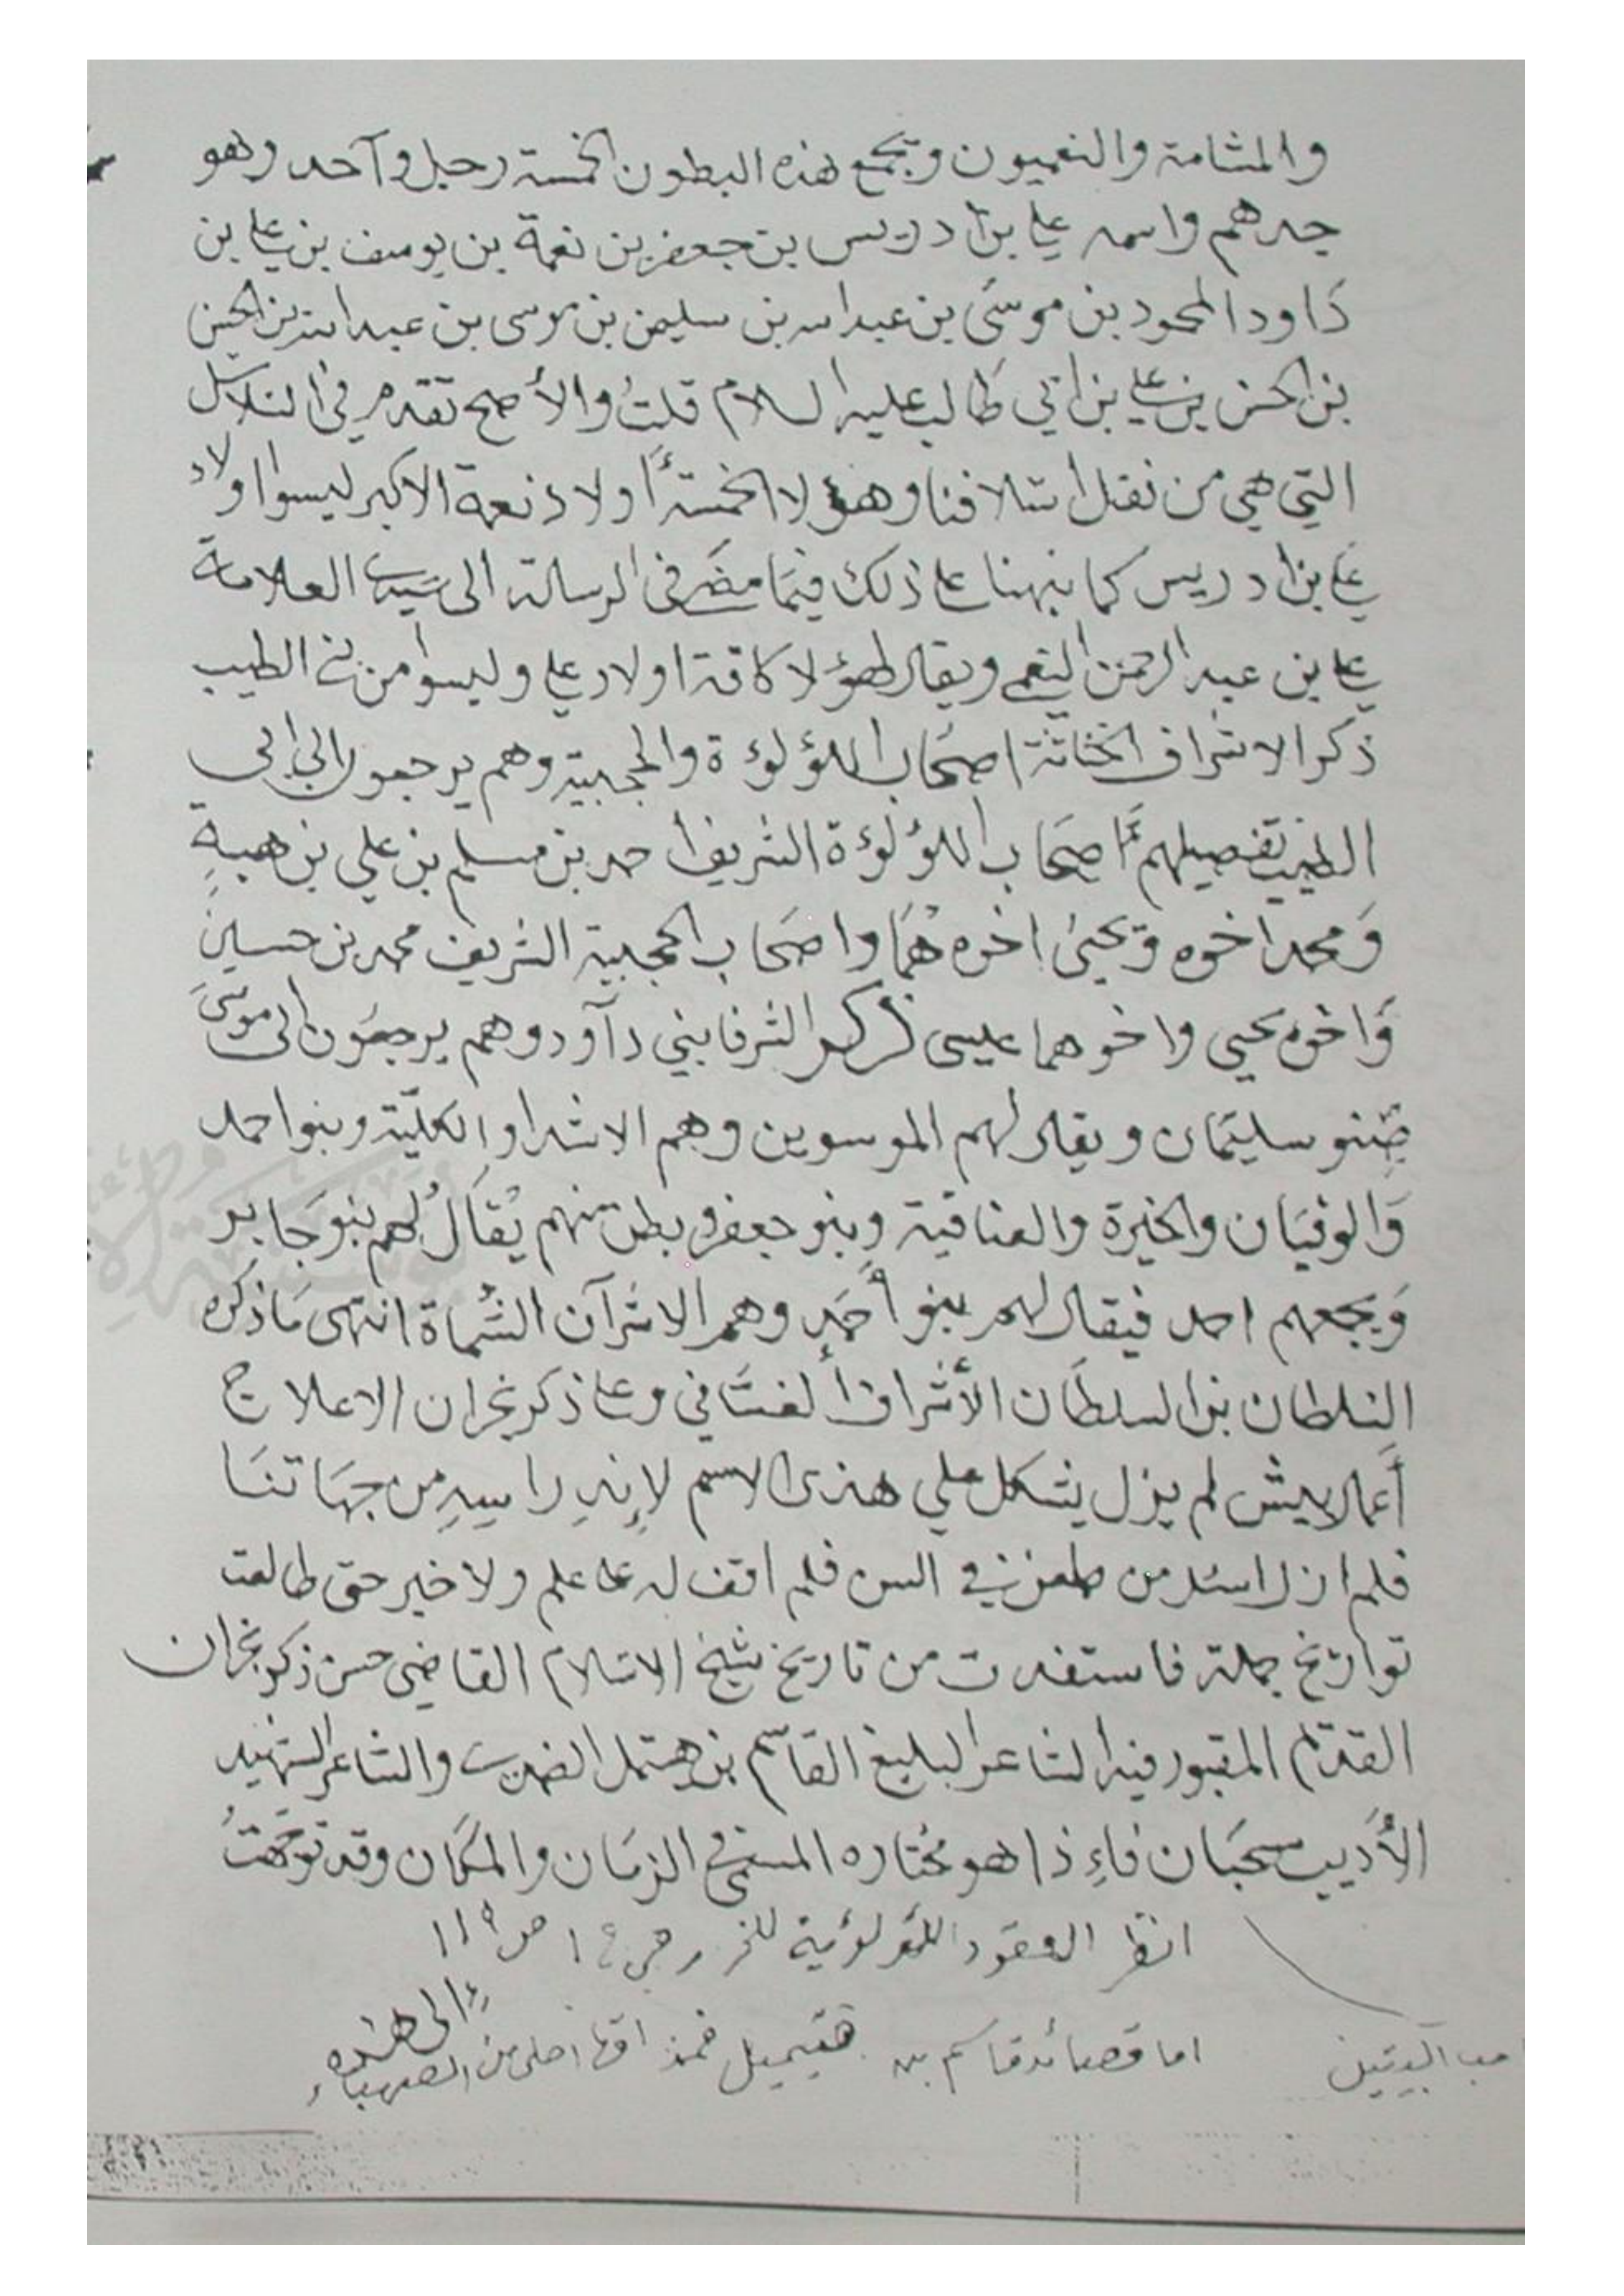 والمشامة والنعميون ويجمع هذه البطون الخمسة رجل وآحد وهو
جدهم واسمه علي بن ادريس بن جعفر بن نعمة بن يوسف بن علي بن
دَاود المحمود بن موسَى بن عبد الله بن سليمن بن موسى بن عبد الله بن الحسن
بن الحسن بن علي بن ابي طالب عليه السلام قلتُ والأصح تقدم في السلاسل
التي هي من نقل اسلافنا وهؤلا الخمسة أولاد نعمة الاكبر ليسوا اولاد
علي بن ادريس كما نبهنا على ذلك فيمَا مضَى في الرسالة الى سيدي العلامة
علي بن عبد الرحمن النعمي ويقال لهؤلا كافة اولاد علي وليسوا من بني الطيب
ذكر الاشراف الخاتة اصحَاب اللؤلؤة والمجبية وهم يرجعون الي ابي
الطيب تفصيلهم أما اصحَاب اللؤلؤة الشريف أحمد بن مسلم بن علي بن هبةٍ
وَمحمد اخوه ويحيىٰ اخوهمَا واصحَاب المجبية الشريف محمد بن حسين
وَاخوه يحيى واخوهما عيسى ذكر الشرفا بني دآود وهم يرجعُون الى موسَى
صِنو سليمَان ويقال لهم الموسوين وهم الاشداو العليّة وبنوا حمد
وَالوفيَان والخيرة والعنافية وبنو جعفر وبطن منهم يُقَالُ لهم بنو جَابر
وَيجمعهم احمد فيقال لهم بنو أحمَدٍ وهم الاشرآن الشُماة انتهى مَا ذكره
السلطان بن السلطَان الأشراف ألغسَاني وعلى ذكر نجران الاعلا ج
أعمال بيش لم يزل يشكل علي هذى الاسم لإنهِ را سيهِ من جهَاتنَا
فلم ازل اسئل من طعن في السن فلم اقف له على علم ولا خبر حتى طالعت
تواريخ جملة فاستفدت من تاريخ شيخ الاسلام القاضي حسن ذكر نجران
القديم المقبور فيه الشاعر البليغ القاسم بن هتمل الضمدي والشاعر الشهيد
الأديب سحبَان فإذا هو مختاره المستمى في الزمَان والمكَان وقد توجّهتُ
انظر العقود اللؤلؤية للخزرجي ج ١ ص ١١٩
اما قصائد قاسم بن هتيميل فمذاقها احلى من الصهباء
إلى هذه
صب البيتين